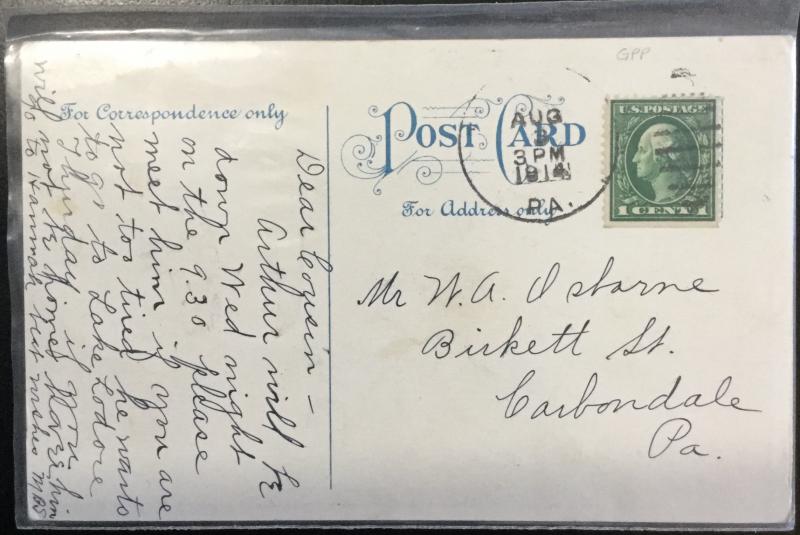 GPP
For Correspondence only
POST CARD
For Address only
AUG
3 PM
1914
PA.
U.S. POSTAGE
1 CENT 1
Dear Cousin -
Arthur will be
down Wed night
on the 9.30 please
meet him if you are
not too tired he wants
to go to Lake Lodore
Thursday if you
will not be home have him
go to Hannah best wishes
Mr W. A. Osborne
Birkett St.
Carbondale
Pa.